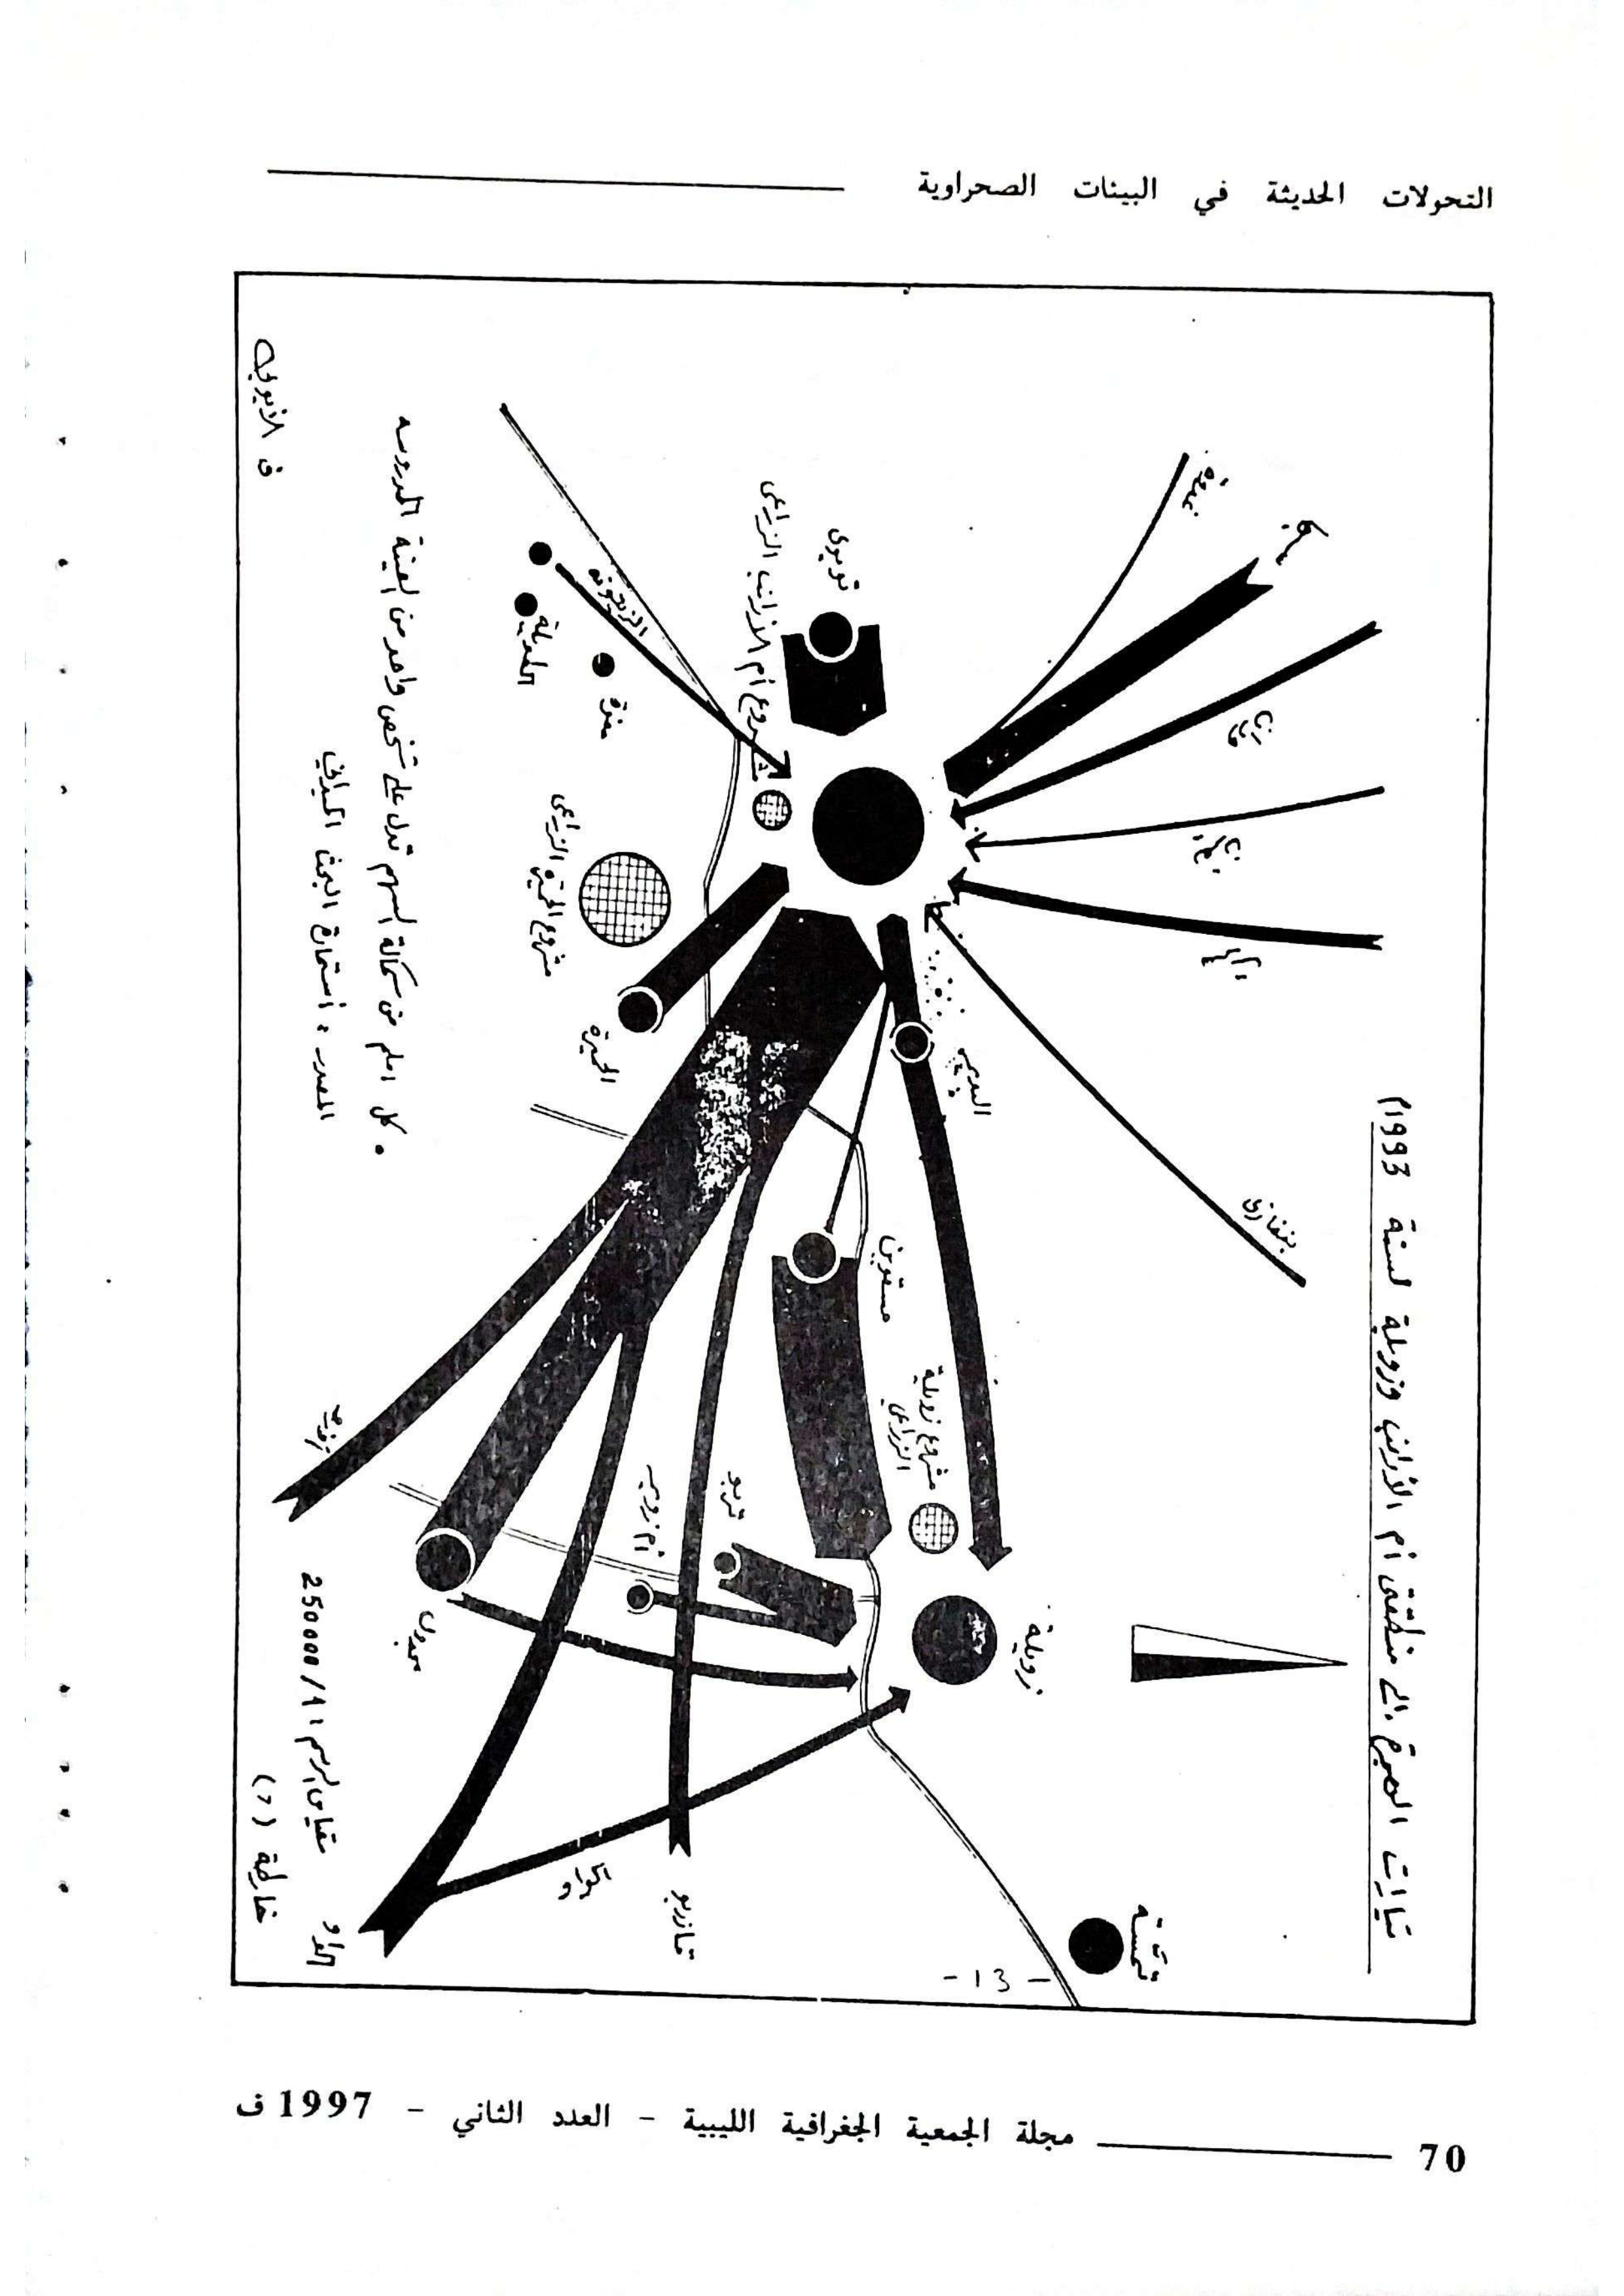 التحولات الحديثة في البيئات الصحراوية
تيارات الهجرة إلى منطقتي أم الأرانب وزويلة لسنة 1993م
سبها
بنغازي
تمسة
زويلة
البدير
مشروع زويلة
الزراعي
مسقوين
تربو
أم زوير
تازربو
تويوي
مشروع أم الأرانب الزراعي
مشروع الحميرة الزراعي
الحميرة
معزة
الطويلة
الزيتونة
مجدول
الكواو
• كل 1ملم من سماكة السهم تدل على شخص واحد من العينة المدروسه
المصدر : أستمارة البحث الميداني
مقياس الرسم 1/250000
خارطة (7)
- 13 -
70 مجلة الجمعية الجغرافية الليبية - العدد الثاني - 1997 ف